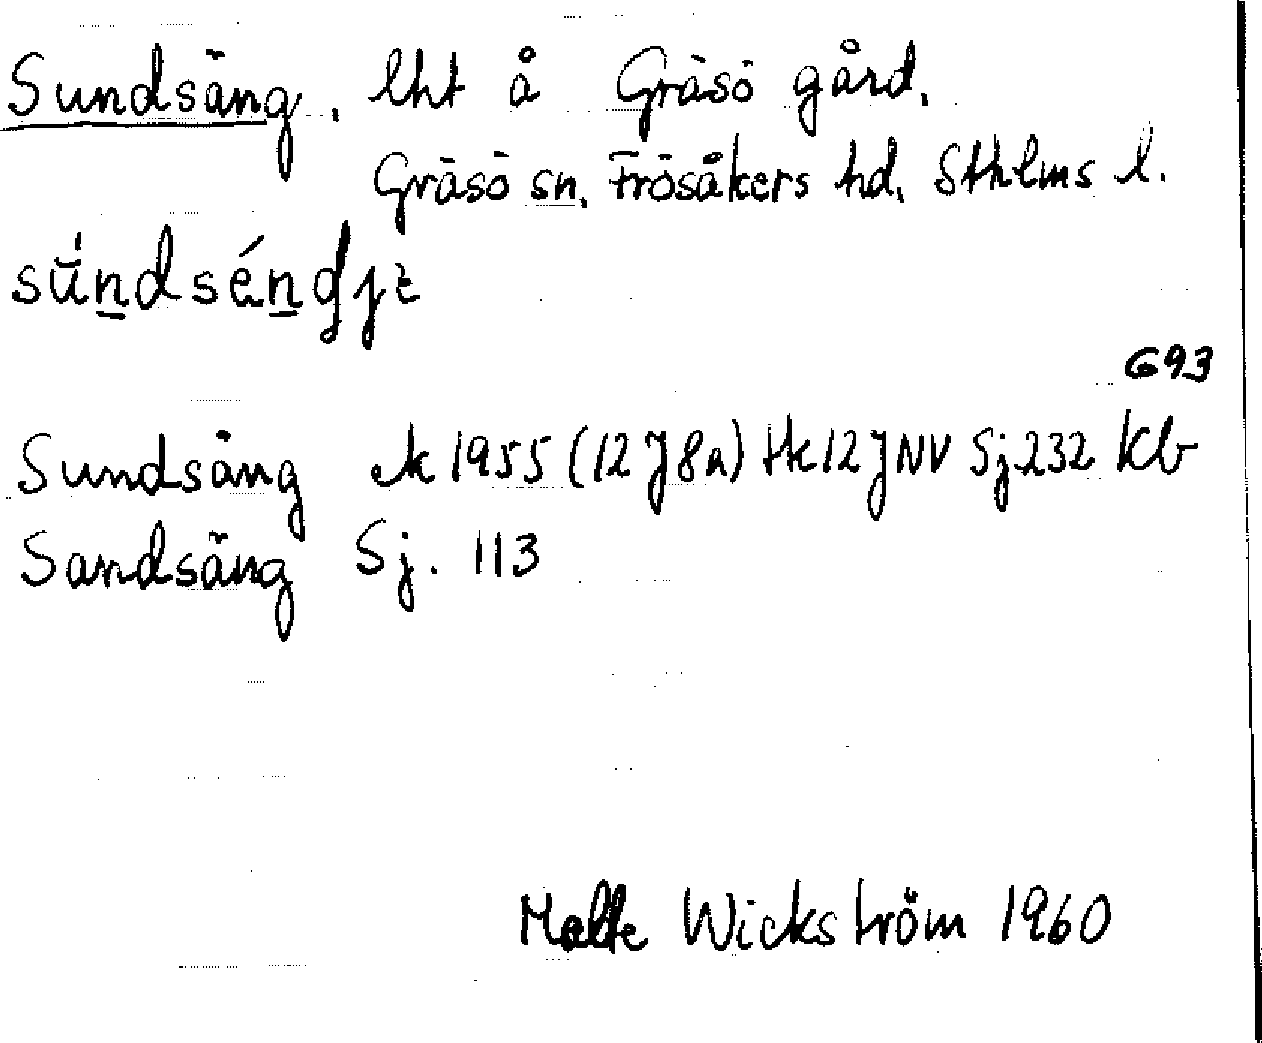 Sundsäng, lht å Gräsö gård,
Gräsö sn, Frösåkers hd, Sthlms l.
693
Sundsäng ek 1955 (12 J 8a) Hk 12 J NV Sj 232 Kb
Sandsäng Sj. 113
Malte Wickström 1960